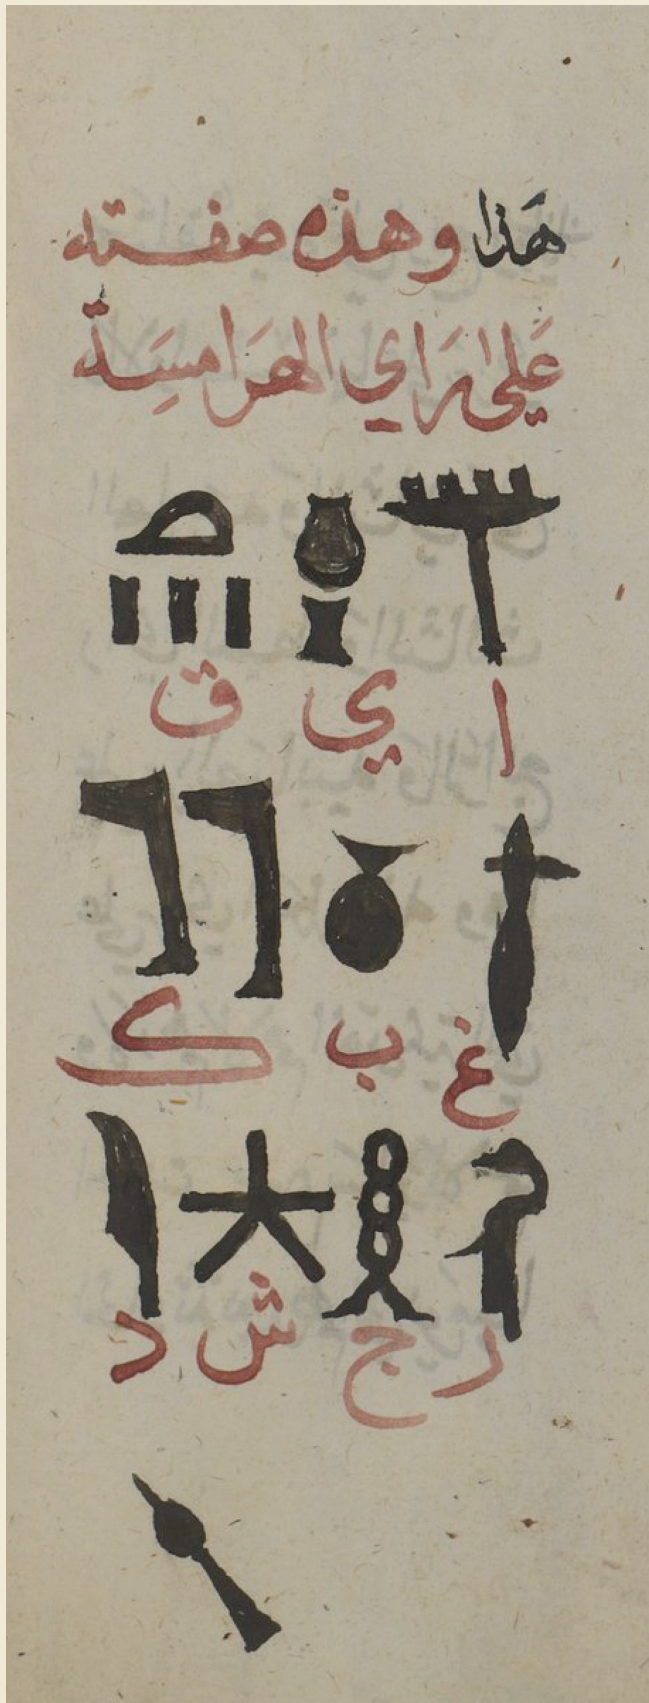 هَذا وهذه صفته
عَلى اراي الهرَامسِة
ا ي ق
غ ب ك
ر ج ش د